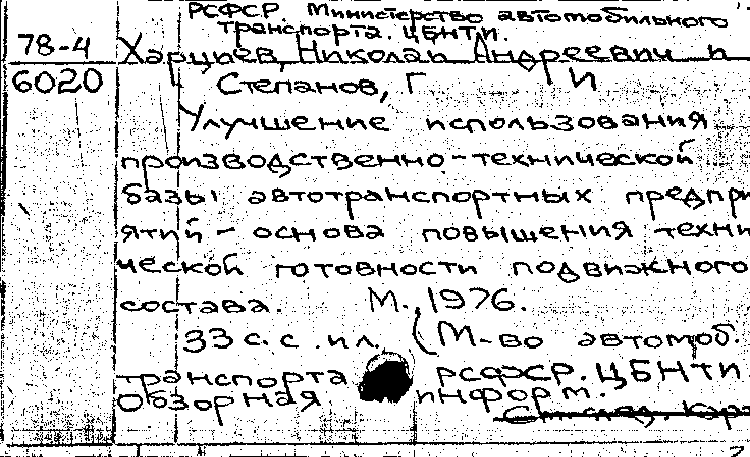 РСФСР. Министерство автомобильного
транспорта. ЦБНТИ.
78-4 Харциев, Николай Андреевич и
6020 Степанов, Г И
Улучшение использования
производственно-технической
базы автотранспортных предпри
ятий - основа повышения техни
ческой готовности подвижного
состава. М., 1976.
33 с. с ил. (М-во автомоб.
транспорта РСФСР. ЦБНТИ
Обзорная информ.